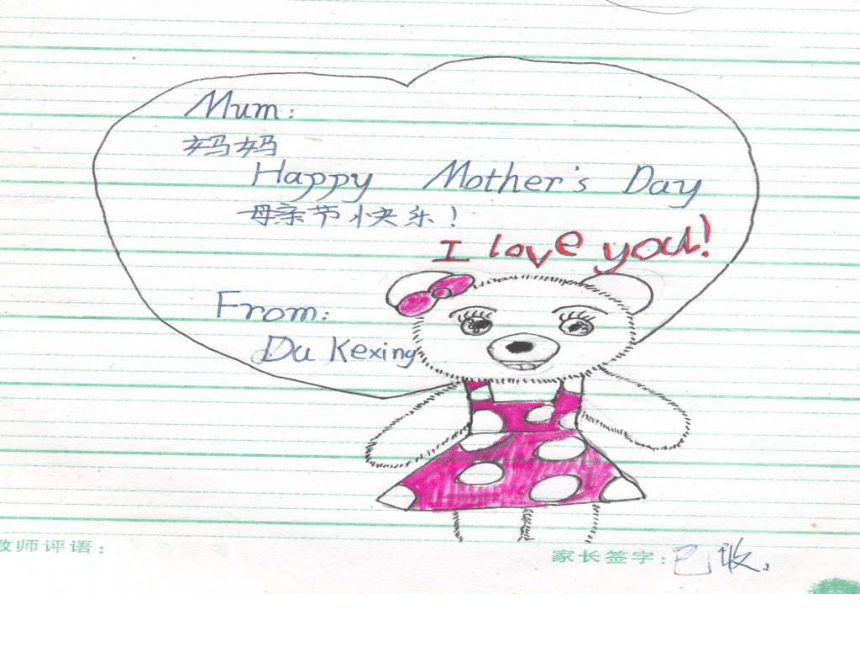 Mum:
妈妈
Happy Mother's Day
母亲节快乐!
I love you!
From:
Du Kexing
教师评语:
家长签字:已收.